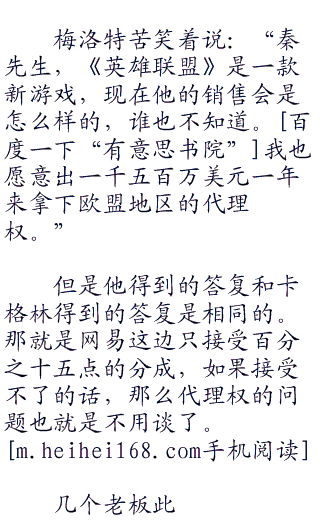 梅洛特苦笑着说：“秦
先生，《英雄联盟》是一款
新游戏，现在他的销售会是
怎么样的，谁也不知道。[百
度一下“有意思书院”]我也
愿意出一千五百万美元一年
来拿下欧盟地区的代理
权。”
但是他得到的答复和卡
格林得到的答复是相同的。
那就是网易这边只接受百分
之十五点的分成，如果接受
不了的话，那么代理权的问
题也就是不用谈了。
[m.heihei168.com手机阅读]
几个老板此